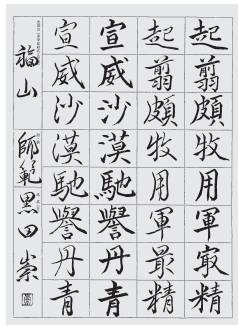 起翦頗牧用軍最精
起翦頗牧用軍㝡精
宣威沙漠馳譽丹青
宣威沙漠馳譽丹青
福山 師範 黒田 崇